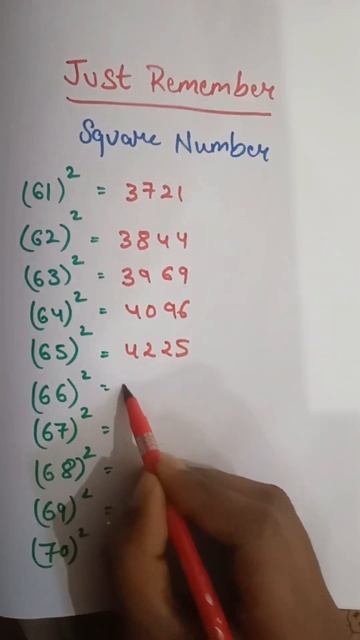 Just Remember
Square Number
(61)² = 3721
(62)² = 3844
(63)² = 3969
(64)² = 4096
(65)² = 4225
(66)² =
(67)² =
(68)² =
(69)² =
(70)²